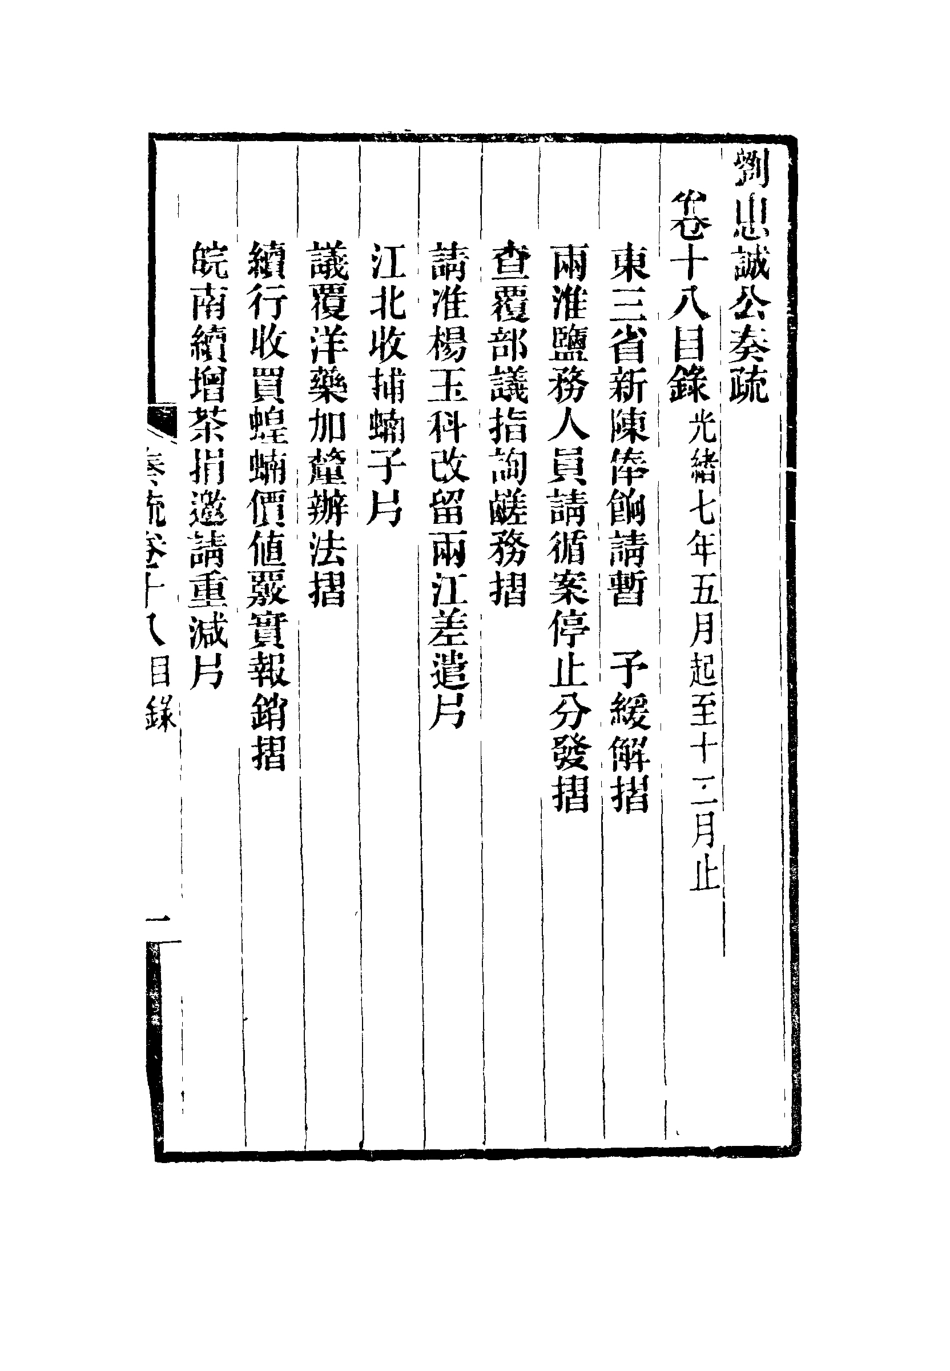 劉忠誠公奏疏
卷十八目錄光緒七年五月起至十二月止
東三省新陳俸餉請暫　予緩解摺
兩淮鹽務人員請循案停止分發摺
查覆部議指詢鹺務摺
請准楊玉科改留兩江差遣片
江北收捕蝻子片
議覆洋藥加釐辦法摺
續行收買蝗蝻價值覈實報銷摺
皖南續增茶捐邀請重減片
奏疏卷十八目錄
一